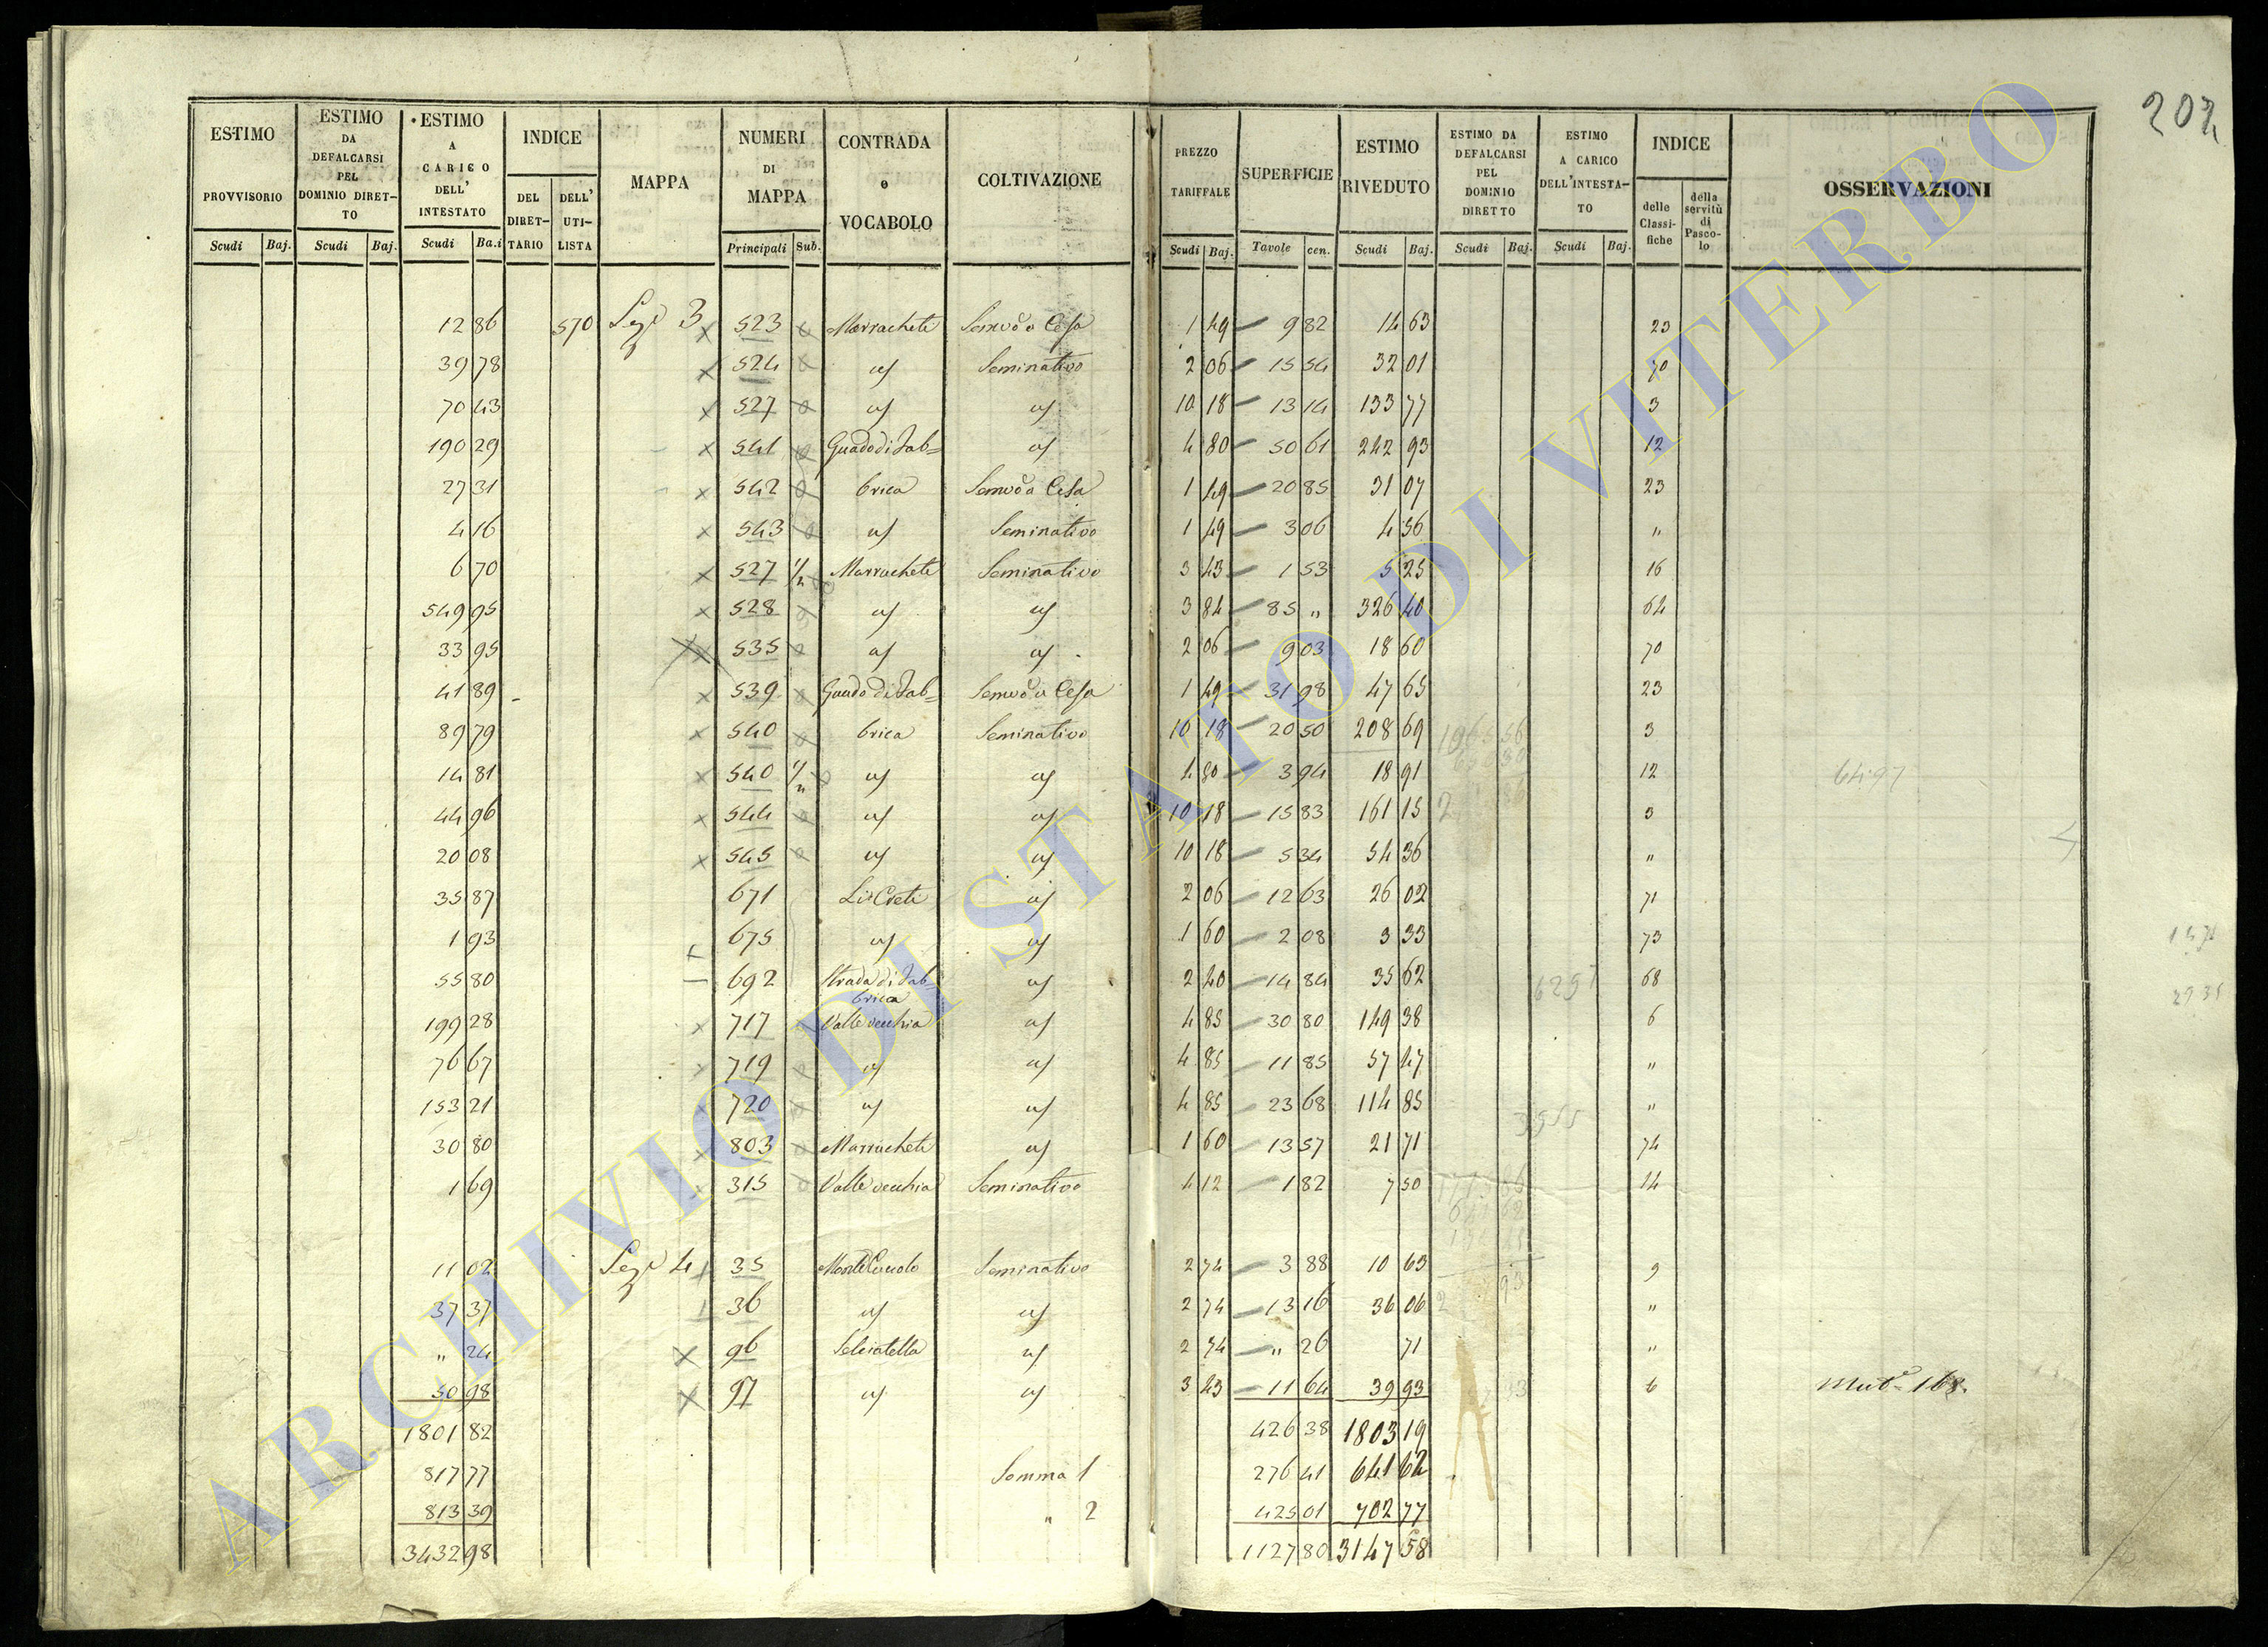 202
ESTIMO PROVVISORIO Scudi Baj. | ESTIMO DA DEFALCARSI PEL DOMINIO DIRETTO Scudi Baj. | ESTIMO A CARICO DELL' INTESTATO Scudi Ba.i | INDICE DEL DIRETTARIO DELL' UTILISTA | MAPPA | NUMERI DI MAPPA Principali Sub. | CONTRADA o VOCABOLO | COLTIVAZIONE | PREZZO TARIFFALE Scudi Baj. | SUPERFICIE Tavole cen. | ESTIMO RIVEDUTO Scudi Baj. | ESTIMO DA DEFALCARSI PEL DOMINIO DIRETTO Scudi Baj. | ESTIMO A CARICO DELL'INTESTATO Scudi Baj. | INDICE delle Classifiche della servitù di Pascolo | OSSERVAZIONI
12 86 570 Sez.e 3 523 Marrachete Semvo a Cesa 1 49 9 82 14 63 23
39 78 524 " Seminativo 2 06 15 54 32 01 70
70 43 527 " " 10 18 13 14 133 77 3
190 29 541 Guado di Fab= " 4 80 50 61 242 93 12
27 31 542 brica Semvo a Cesa 1 49 20 85 31 07 23
4 16 543 " Seminativo 1 49 3 06 4 56 "
6 70 527 1/2 Marrachete Seminativo 3 43 1 53 5 25 16
549 95 528 " " 3 84 85 " 326 40 64
33 95 535 " " 2 06 9 03 18 60 70
41 89 539 Guado di Fab= Semvo a Cesa 1 49 31 98 47 65 23
89 79 540 brica Seminativo 10 18 20 50 208 69 3
14 81 540 1/2 " " 4 80 3 94 18 91 12
44 96 544 " " 10 18 15 83 161 15 3
20 08 545 " " 10 18 5 34 54 36 "
35 87 671 Li Creti " 2 06 12 63 26 02 71
1 93 675 " " 1 60 2 08 3 33 73
55 80 692 Strada di Fabbrica " 2 40 14 84 35 62 68
199 28 717 Valle vecchia " 4 85 30 80 149 38 6
76 67 719 " " 4 85 11 85 57 47 "
153 21 720 " " 4 85 23 68 114 85 "
30 80 803 Marrachete " 1 60 13 57 21 71 74
1 69 315 Valle vecchia Seminativo 4 12 1 82 7 50 14
11 02 Sez.e 4 35 Seminativo 2 74 3 88 10 63 9
37 37 36 " " 2 74 13 16 36 06 "
" 24 96 Selciatella " 2 74 " 26 71 "
50 98 97 " " 3 43 11 64 39 93 6 Mut.e 168
1801 82 426 38 1803 19
817 77 Somma 1 276 41 641 62
813 39 " 2 425 01 702 77
3432 98 1127 80 3147 58
ARCHIVIO DI STATO DI VITERBO